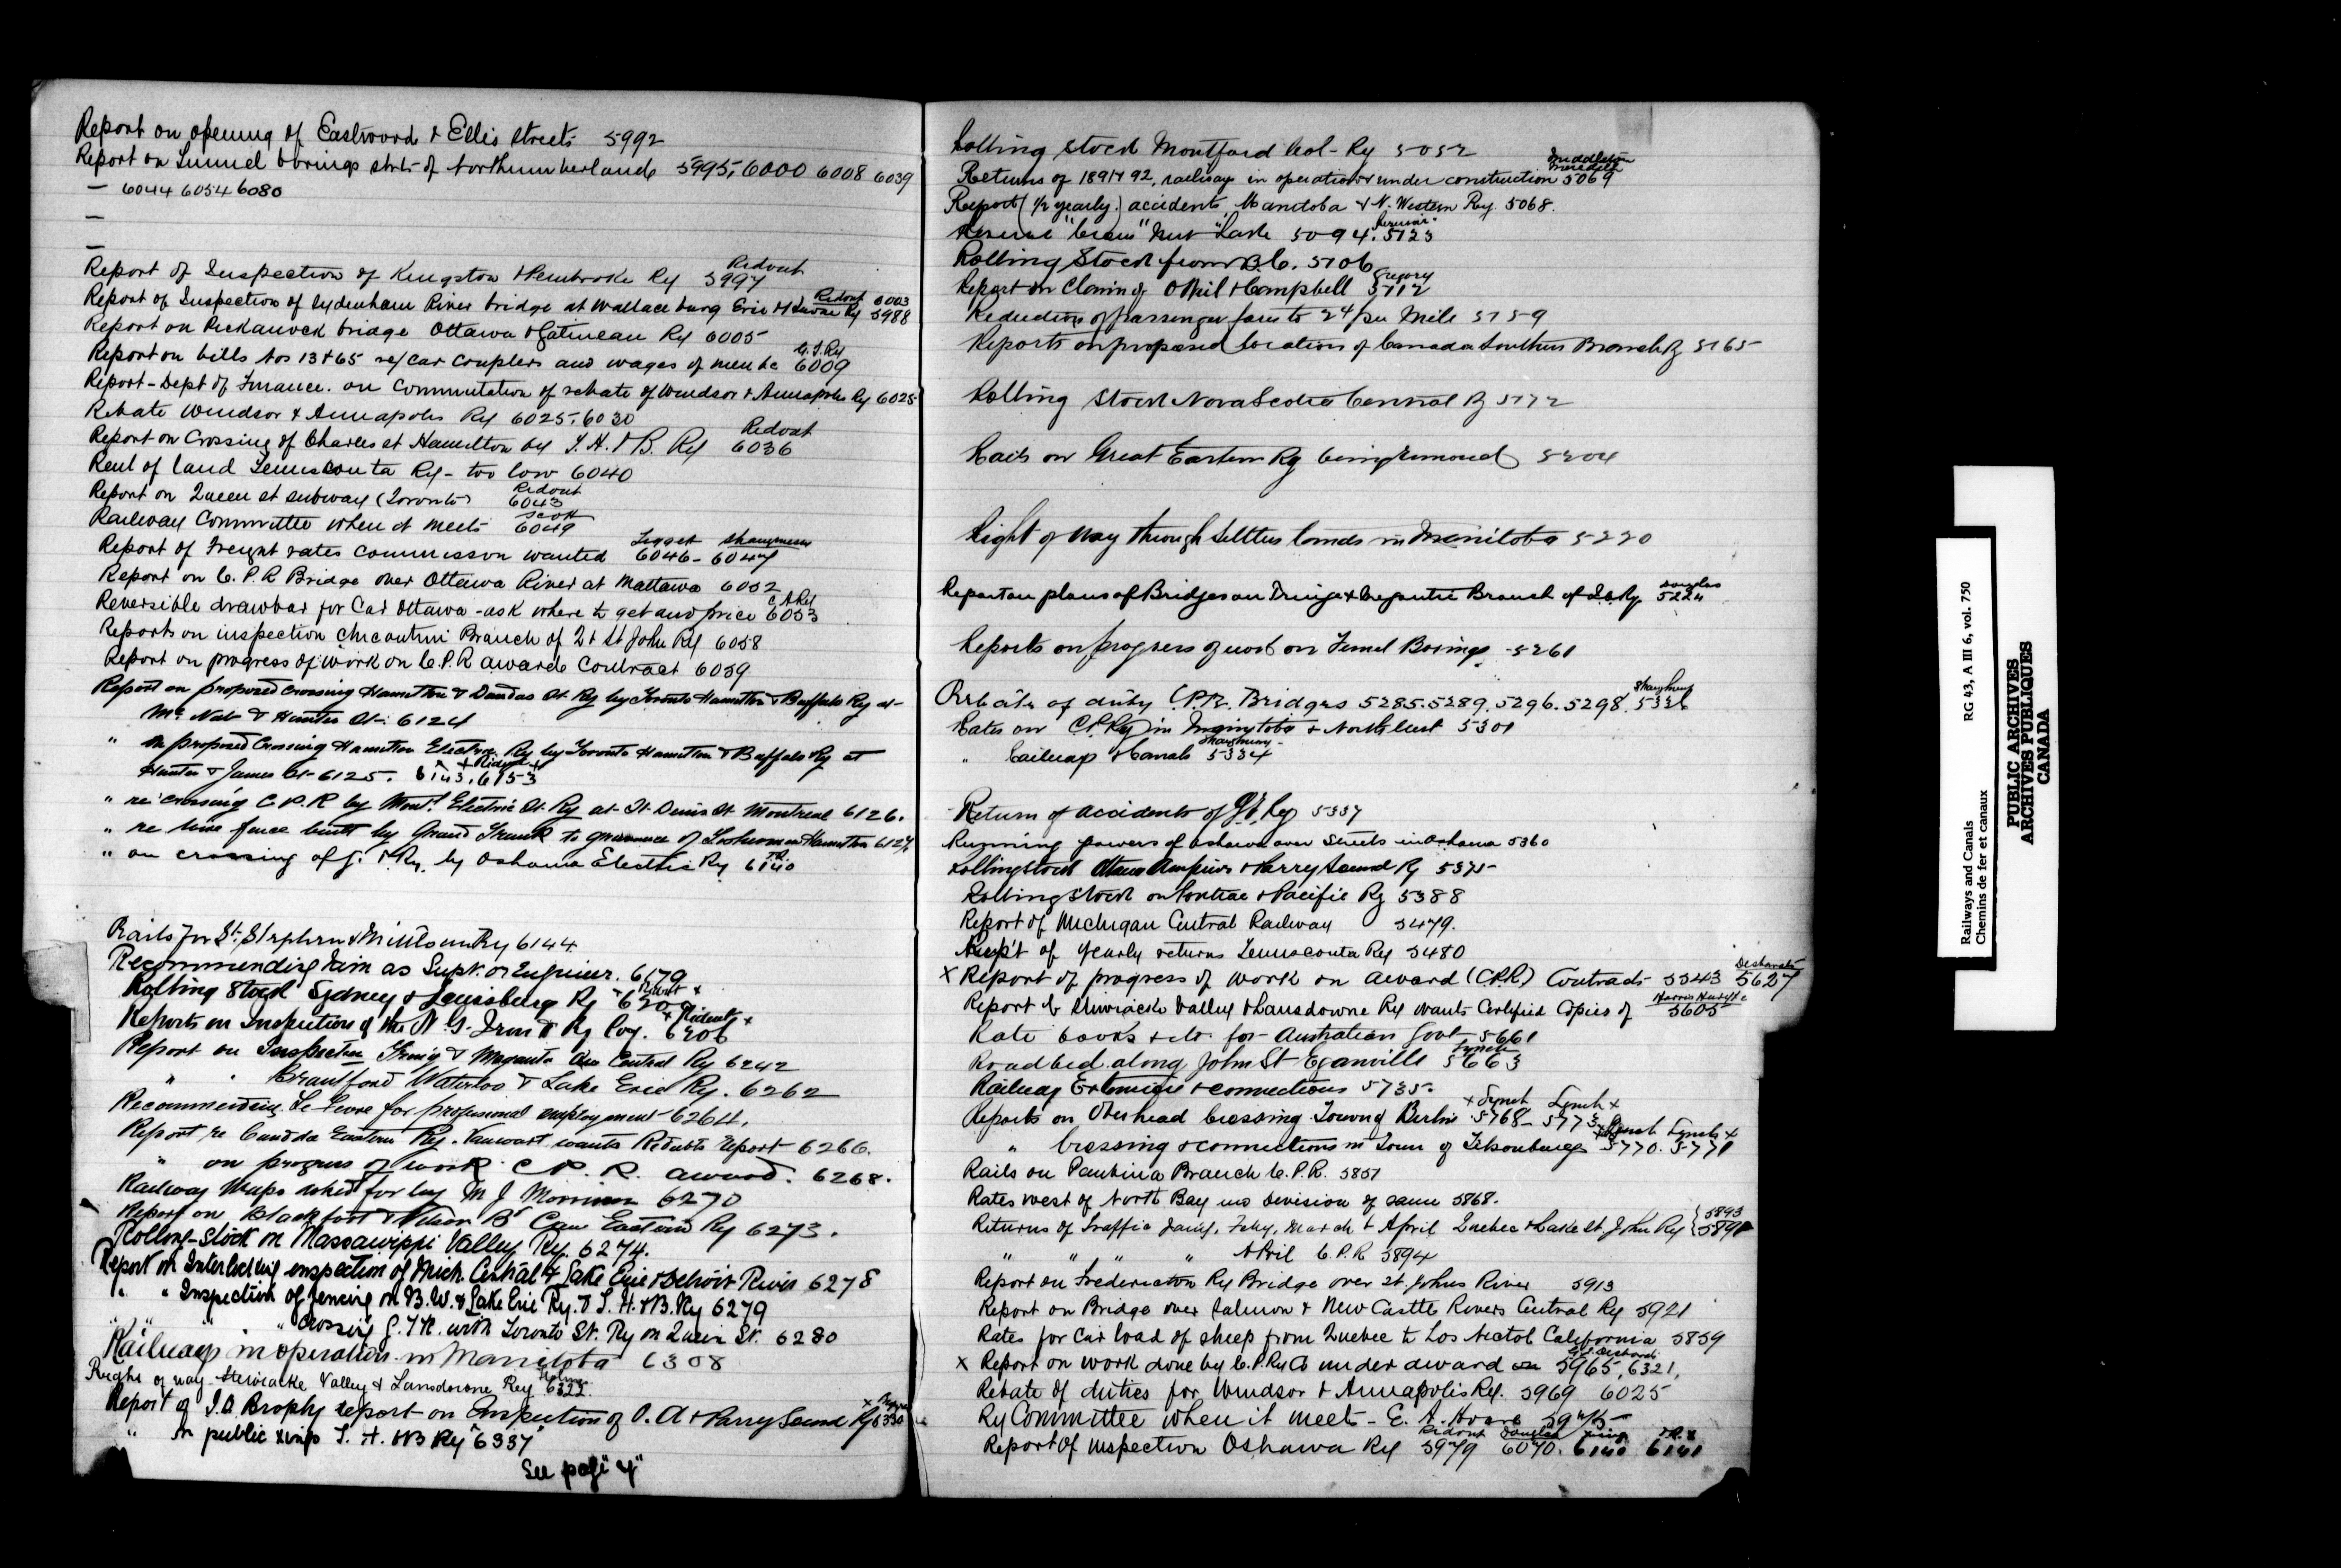 Report on opening of Eastwood & Ellis Streets 5992
Report on Tunnel borings strts of Northumberland 5995, 6000 6008 6039
— 6044 6054 6080
—
—
Report of Inspection of Kingston & Pembroke Ry Ridout 5997
Report of Inspection of Sydenham River bridge at Wallaceburg Erie & Huron Ry Ridout 6003 5988
Report on Peckanock bridge Ottawa & Gatineau Ry 6005
Report on bills Nos 13 & 65 re/ car couplers and wages of men &c G.T.Ry 6009
Report - Dept of Finance. on Commutation of rebate of Windsor & Annapolis Ry 6025
Rebate Windsor & Annapolis Ry 6025, 6030
Report on Crossing of Charles st Hamilton by T. H. & B. Ry Ridout 6036
Rent of land Temiscouta Ry - too low 6040
Report on Queen st subway (Toronto) Ridout 6043
Railway Committee when it meets Scott 6049
Report of Freight rates commission wanted 6046 - Shaughnessy 6047
Report on C. P. R Bridge over Ottawa River at Mattawa 6052
Reversible drawbar for Car Ottawa - ask where to get and price C A Ry 6053
Reports on inspection Chicoutimi Branch of Q & St John Ry 6058
Report on progress of work on C.P.R award Contract 6059
Report on proposed crossing Hamilton & Dundas St Ry by Toronto Hamilton & Buffalo Ry at
Mc Nab & Hunter St. 6124
" on proposed Crossing Hamilton Electric Ry by Toronto Hamilton & Buffalo Ry at
Hunter & James St - 6125. 6143, 6153 x Ridout x
" re crossing C.P.R by Mont. Electric St. Ry at St Denis St Montreal 6126.
" re line fence built by Grand Trunk to grievance of Hamilton 6127
" on crossing of G. T Ry. by Oshawa Electric Ry T.R. 6140
Rails for St. Stephen & Milltown Ry 6144
Recommending him as Supt. or Engineer. 6179
Rolling Stock Sydney & Louisburg Ry 6200
Reports on Inspection of the N. S. Iron & Ry Coy. x Ridout x 6206
Report on Inspection Tring & Megantic Que Central Ry 6242
" " Brantford Waterloo & Lake Erie Ry. 6262
Recommending for professional employment 6264.
Report re Canada Eastern Ry. Vanwart wants Ridouts report 6266.
" on progress of work C. P. R. award. 6268.
Railway Maps asked for by M J Morrison 6270
Report on Blackfoot & Nelson Br Can Eastern Ry 6273.
Rolling-Stock on Massawippi Valley Ry. 6274.
Report on Interlocking inspection of Mich Central & Lake Erie & Detroit River 6278
" " Inspection of fencing on B.W. & Lake Erie Ry. & T. H. & B. Ry 6279
" " " Crossing G.T.R. with Toronto St. Ry on Queen St. 6280
Railways in operation in Manitoba 6308
Right of way Stewiacke Valley & Lansdowne Ry 6322.
Report of J.A. Brophy report on Inspection of O. A & Parry Sound Ry 6330
" on public xings T. H. & B Ry 6337
See page "4"
Rolling stock Montford Col - Ry 5052
Returns of 1891 & 92, railways in operation & under construction Middleton Meredith 5069
Report (1/2 yearly) accidents, Manitoba & N. Western Ry. 5068.
5094. 5123
Rolling Stock from B.C. 5106
Report on Claim of O'Neil & Campbell Gregory 5112
Reduction of passenger fares to 2¢ per Mile 5159
Reports on proposed location of Canada Southern Branch Ry 5165
Rolling Stock Nova Scotia Central Ry 5172
Rails on Great Eastern Ry being removed 5204
Right of way through Settlers lands in Manitoba 5220
Report on plans of Bridges on Tring & Megantic Branch of Q.C. Ry. Douglas 5224
Reports on progress of work on Tunnel Borings 5261
Rebate of duty C.P.R. Bridges 5285. 5289. 5296. 5298. Shaughnessy 5326
Rates on C.P.Ry in Manitoba & North West 5301
" Railways & Canals Shaughnessy 5334
Return of accidents of G.T. Ry 5357
Running powers of Oshawa over Streets in Oshawa 5360
Rolling stock Ottawa Arnprior & Parry Sound Ry 5375
Rolling Stock on Pontiac & Pacific Ry 5388
Report of Michigan Central Railway 5479.
Rcpt of yearly returns Temiscouta Ry 5480
x Report of progress of work on award (C.P.R.) Contracts 5543 5627
Report of Stewiacke Valley & Lansdowne Ry wants Certified Copies of 5605
Rate books &c. for Australian Govt 5661
Roadbed along John St Eganville Lynch 5663
Railway Extension & connections 5735.
Reports on Overhead crossing Town of Berlin x Lynch 5768 - Lynch x 5773
" crossing & connections in Town of Tilsonburg x Lynch 5770. Lynch x 5771
Rails on Pembina Branch C.P.R. 5851
Rates west of North Bay no division of same 5868.
Returns of Traffic Jany, Feby, March & April Quebec & Lake St John Ry { 5893 5898
" " " " April C. P. R 5894
Report on Fredericton Ry Bridge over St. Johns River 5913
Report on Bridge over Salmon & New Castle Rivers Central Ry 5921
Rates for Car load of sheep from Quebec to Los California 5859
x Report on work done by C.P.Ry Co under award on 5965, 6321,
Rebate of duties for Windsor & Annapolis Ry. 5969 6025
Ry Committee when it meets - E. A. Hoare 5975
Report of inspection Oshawa Ry Ridout 5979 Douglas 6070. 6140 T.R. x 6141
Railways and Canals
Chemins de fer et canaux
RG 43, A III 6, vol. 750
PUBLIC ARCHIVES
ARCHIVES PUBLIQUES
CANADA